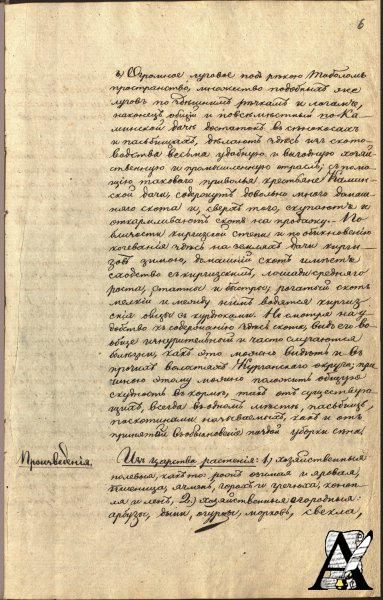 6
в) Огромное луговое подъ рѣкою Тоболомъ
пространство, множество подобныхъ ему
луговъ по ближнимъ рѣчкамъ и логамъ,
наконецъ общiй и повсемѣстный по Ка-
минской дачѣ достатокъ въ сѣнокосахъ
и пастбищахъ, дѣлаютъ здѣсь изъ ското-
водства весьма удобную и выгодную хозяй-
ственную и промышленную отрасль; съ помо-
щiю такового приволья крестьяне Камин-
ской дачи, содержутъ довольно много домаш-
няго скота и сверхъ того, скупаютъ и
откармливаютъ скотъ на продажу. По
близости киргизской степи и по обыкновенiю
кочеванiя здѣсь на земляхъ дачи кирги-
зовъ зимою, домашнiй скотъ имѣетъ
сходство съ киргизскимъ, лошади средняго
роста, статные и быстры, рогатый скотъ
мелкiй и между ними водятся киргиз-
скiя овцы съ курдюками. Не смотря на у-
добство къ содержанiю здѣсь скота, видъ его во-
обще изнурительный и часто случаются
болѣзни, какъ это можно видѣть и въ
прочихъ волостяхъ Курганскаго округа; при-
чиною этому можно положить общую
скудность въ кормѣ, такъ отъ существую-
щихъ, всегда въ одномъ мѣстѣ, пастбищъ,
поскотинами называемыхъ, какъ и отъ
принятой въ обыкновенiе поздой уборки сѣна.
Произведенiя.
Изъ царства растенiя: 1) хозяйственныя
полевыя, какъ то: рожь озимая и яровая,
пшеница, ячмень, горохъ и гречюха, коноп-
ля и ленъ, 2) хозяйственныя огородныя:
арбузы, дыни, огурцы, морковь, свекла,